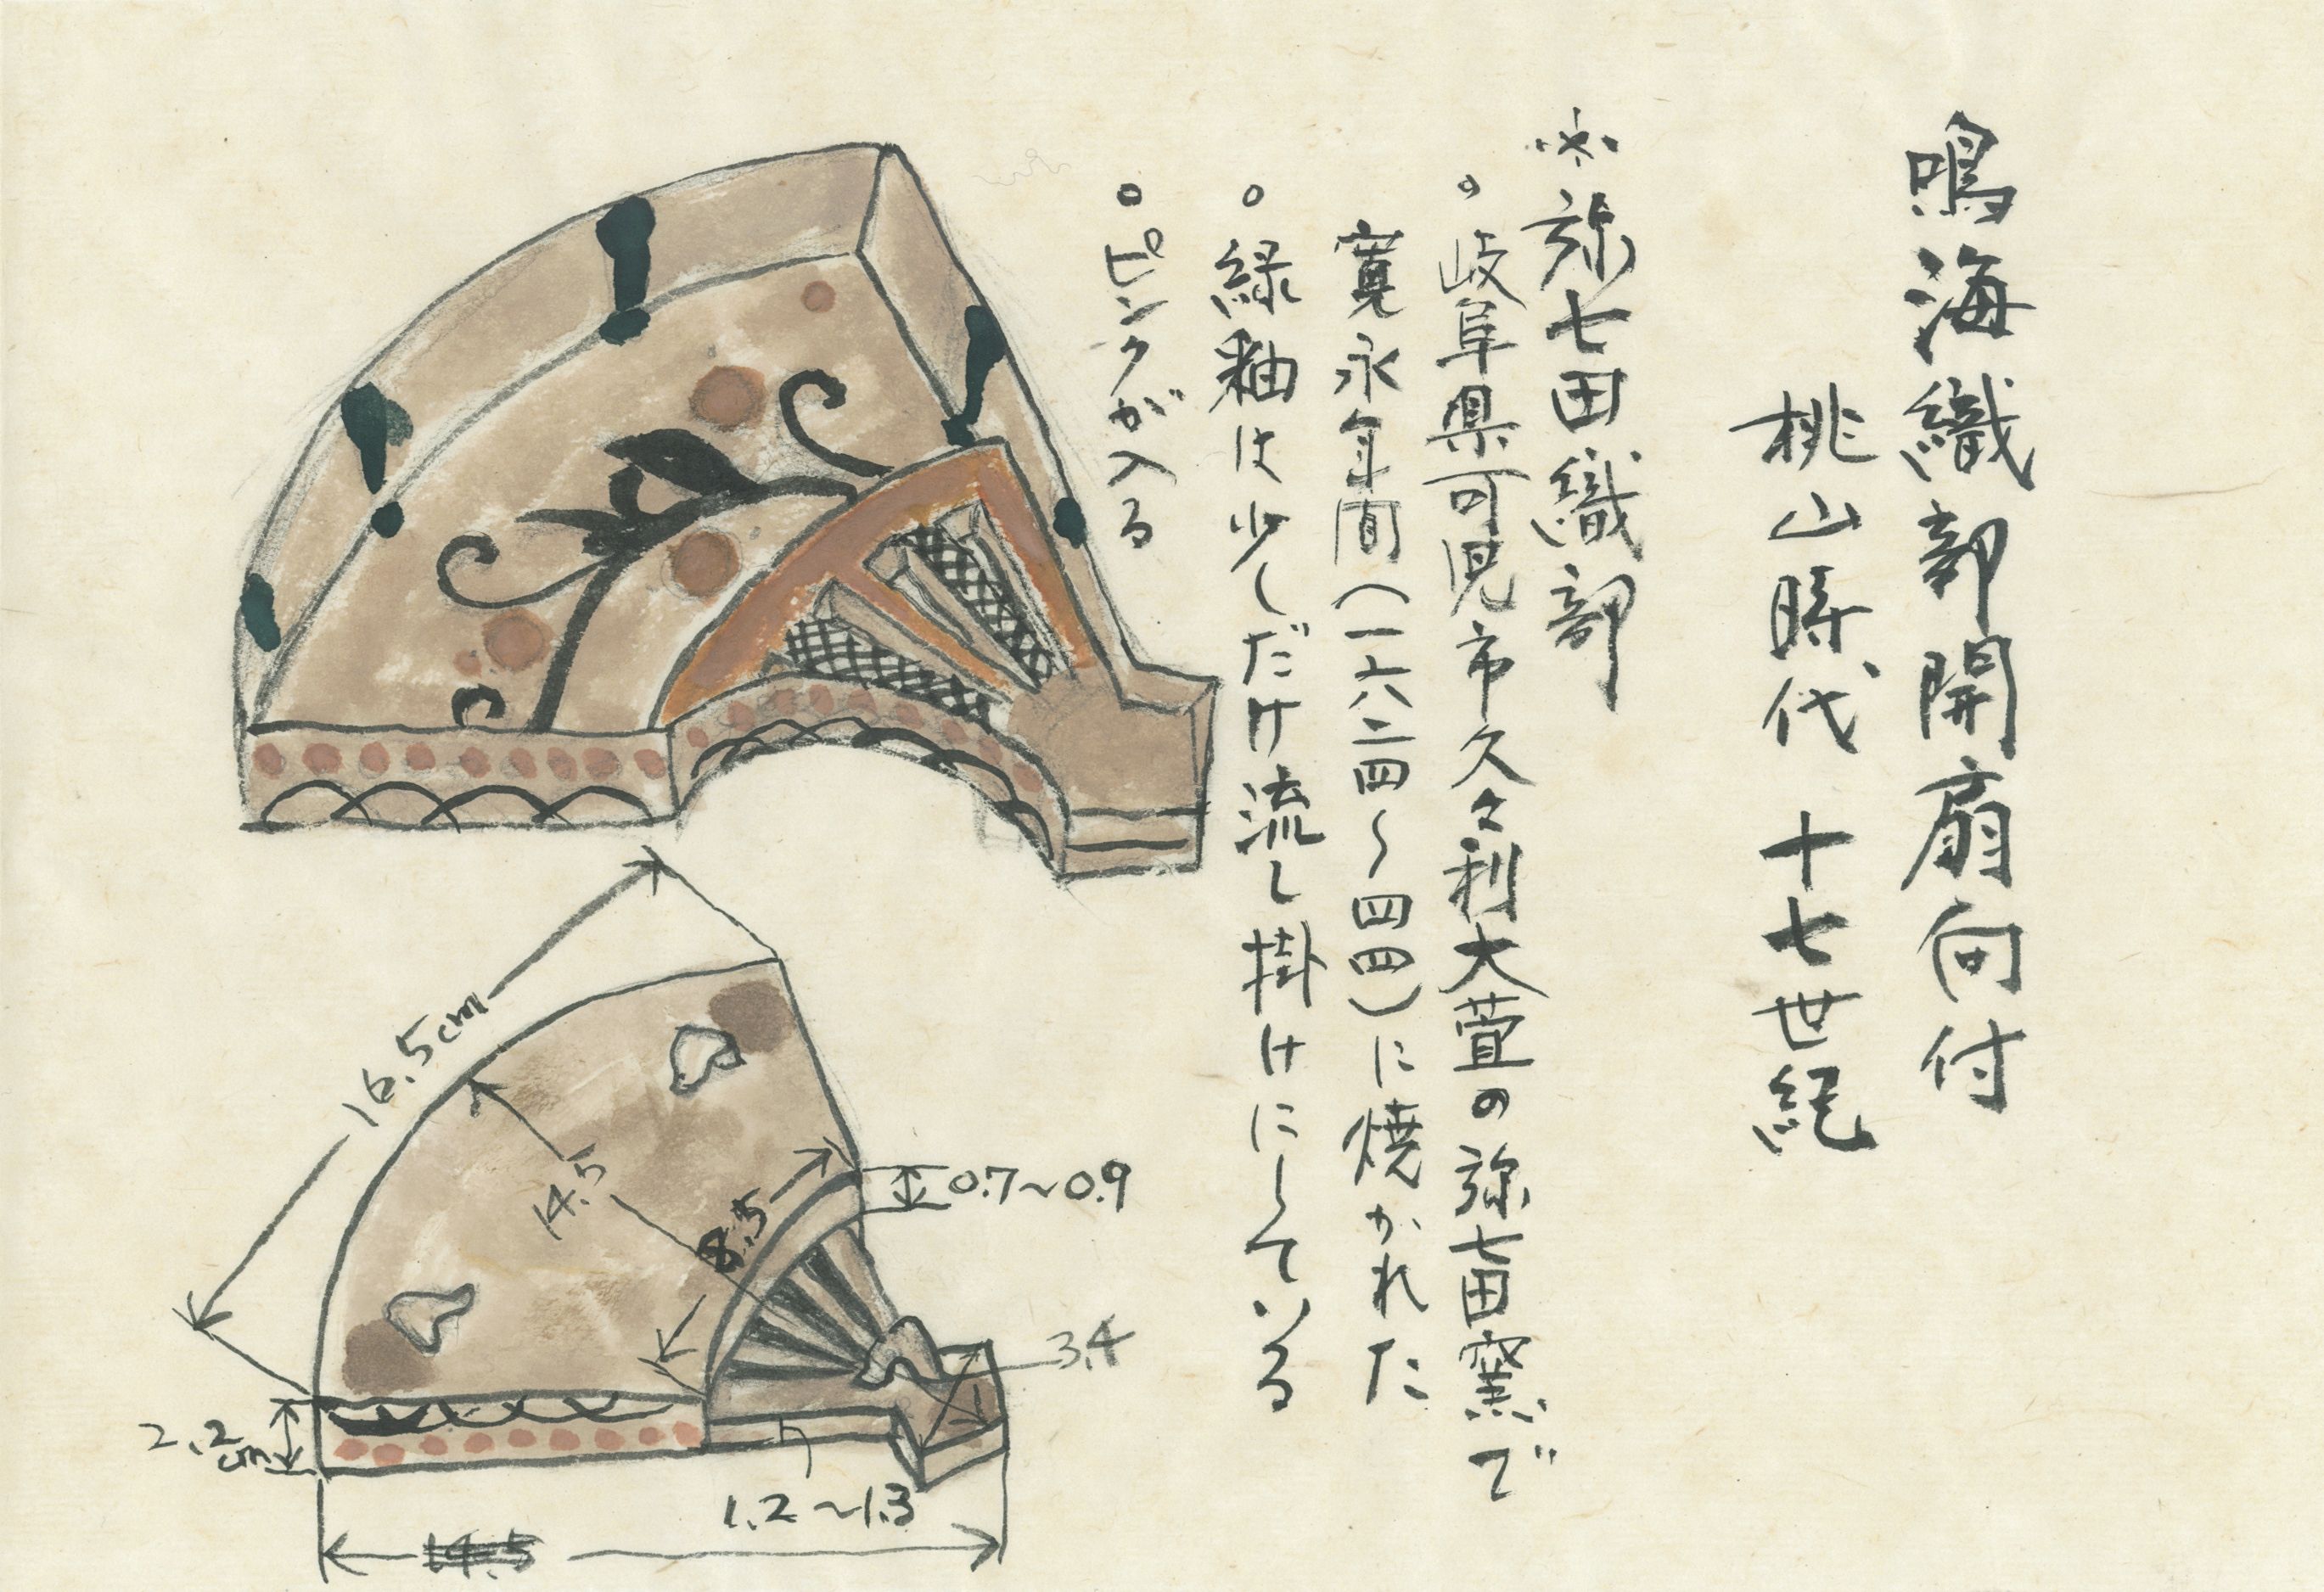 鳴海織部開扇向付
桃山時代 十七世紀
※弥七田織部
。岐阜県可児市久々利大萱の弥七田窯で
寛永年間(一六二四〜四四)に焼かれた
。緑釉は少しだけ流し掛けにしている
。ピンクが入る
16.5cm
14.5
8.5
0.7〜0.9
3.4
2.2cm
1.2〜1.3
14.5